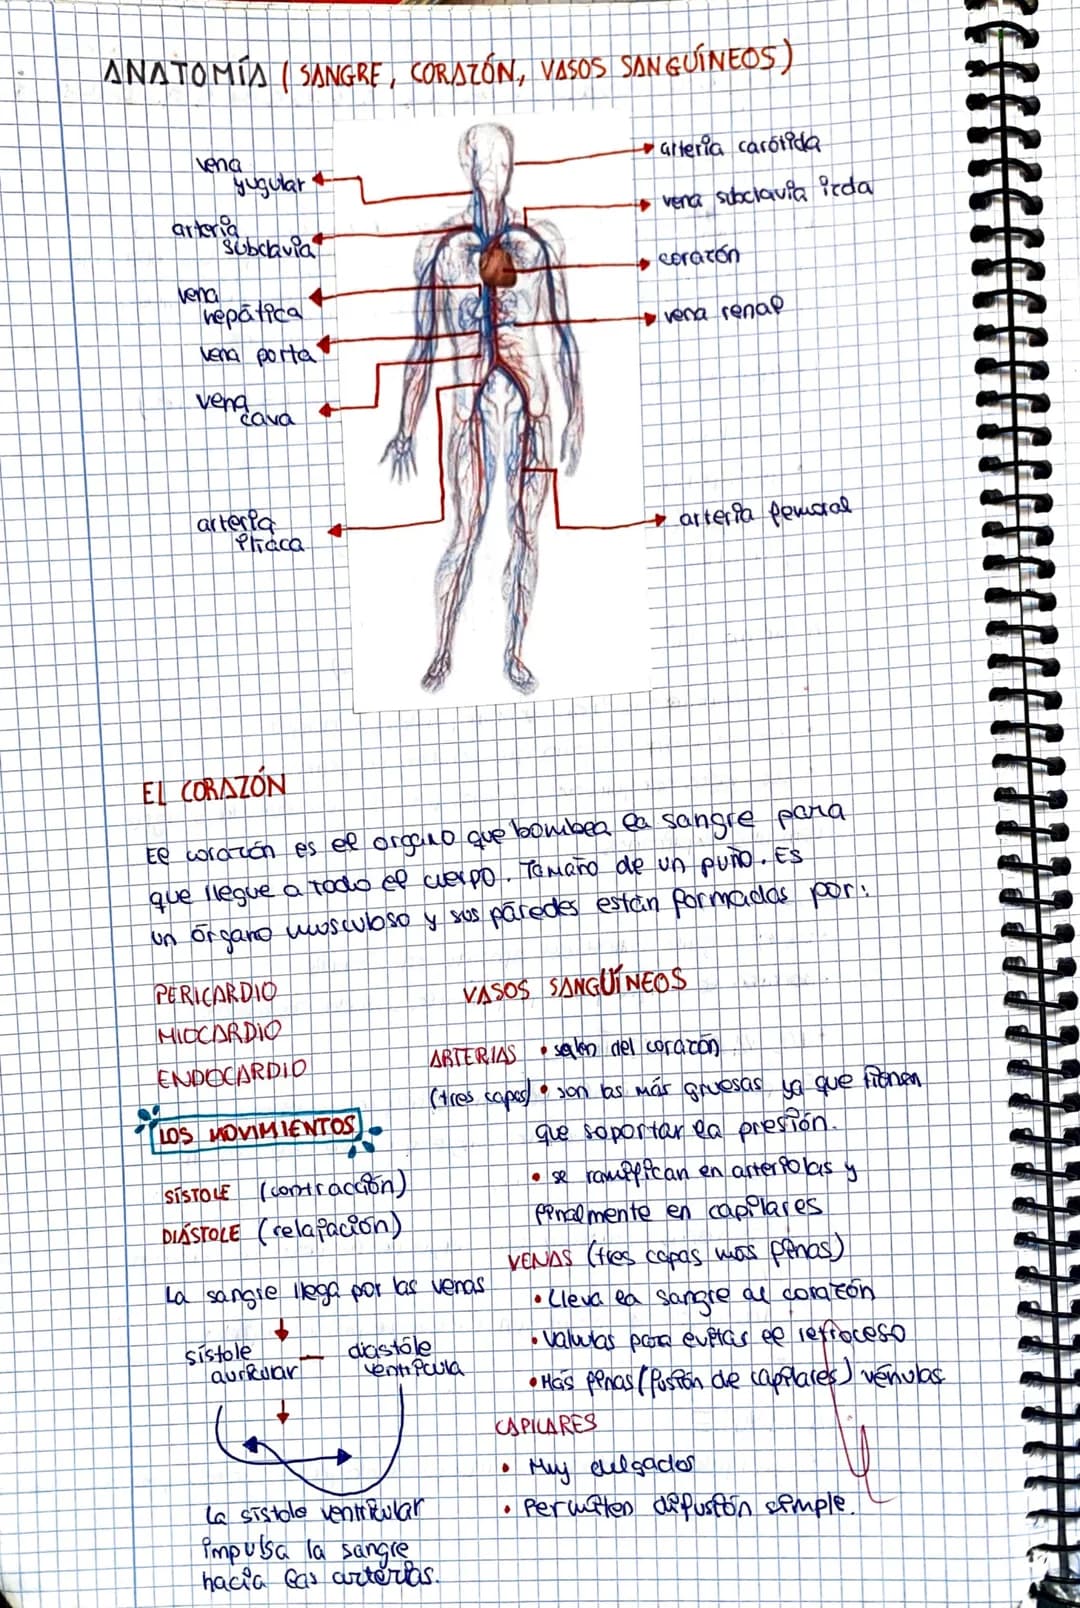 ANATOMÍA (SANGRE, CORAZÓN, VASOS SANGUÍNEOS)
vena
yugular
arteria
subclavia
vena
hepática
vena porta
vena
cava
arteria
iliaca
arteria carótida
vena subclavia izda
corazón
vena renal
arteria femoral
EL CORAZÓN
El corazón es el organo que bombea la sangre para
que llegue a todo el cuerpo. Tamaño de un puño. Es
un órgano musculoso y sus páredes están formadas por:
PERICARDIO
MIOCARDIO
ENDOCARDIO
LOS MOVIMIENTOS
SÍSTOLE (contracción)
DIÁSTOLE (relajación)
La sangre llega por las venas
sístole
auricular
diástole
ventricula
La sístole ventricular
impulsa la sangre
hacia las arterias.
VASOS SANGUÍNEOS
ARTERIAS • salen del corazón
(tres capas) • son las más gruesas ya que tienen
que soportar la presión.
• se ramifican en arteriolas y
finalmente en capilares
VENAS (tres capas mas finas)
• Lleva la sangre al corazón
• Valvulas para evitar el retroceso
• Más finas (fusión de capilares) vénulas
CAPILARES
• Muy delgados
• Permiten difustón simple.